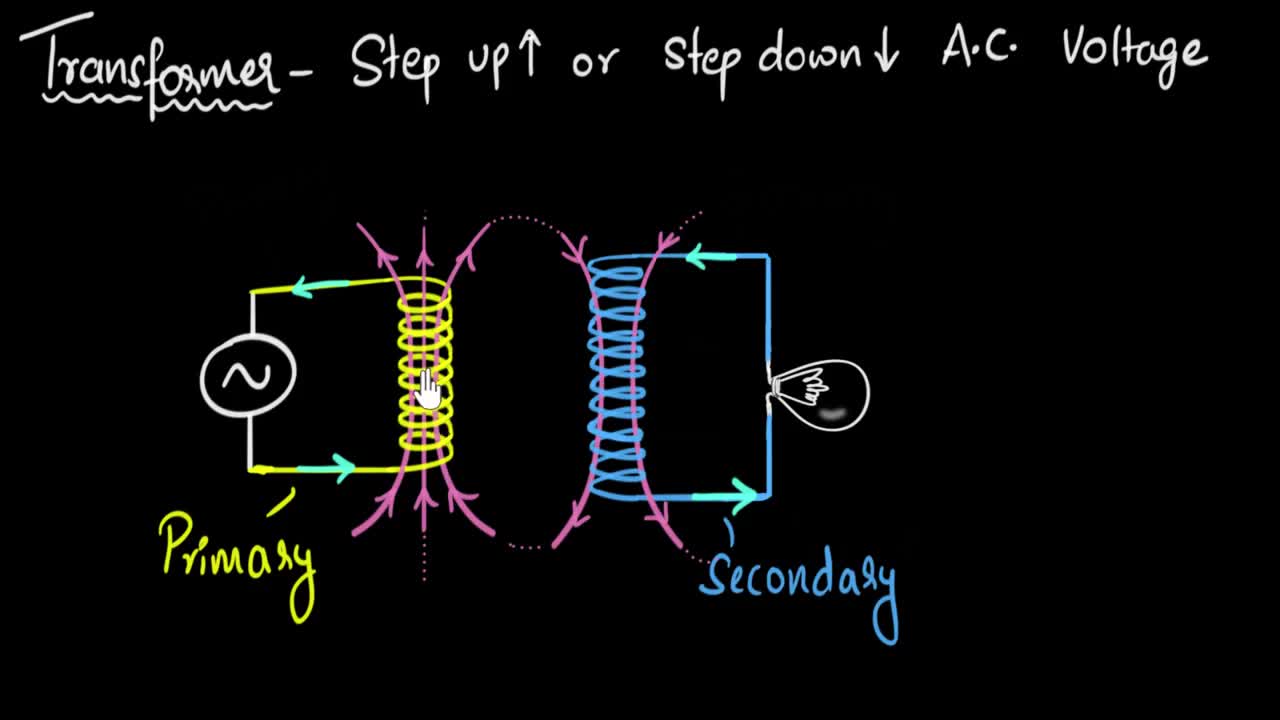 Transformer - Step up↑ or Step down↓ A.C. Voltage
Primary
Secondary